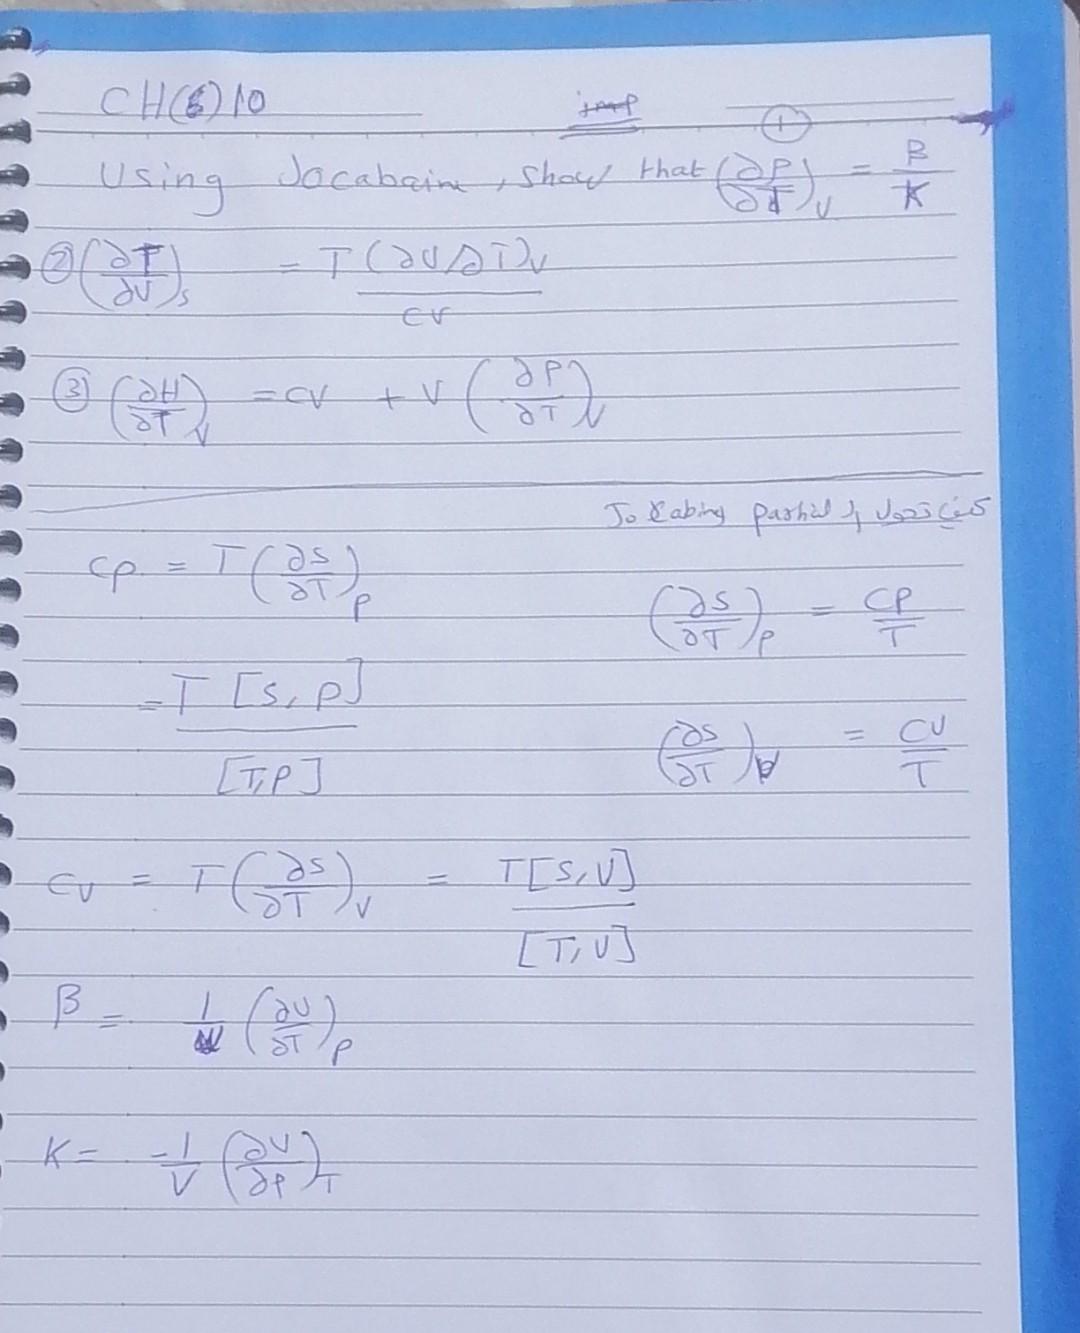 CH(6)10
imp
①
Using Jocabaine, show that (∂P/∂T)_V = B/K
② (∂T/∂V)_S = T(∂V/∂T)_V / CV
③ (∂H/∂T)_V = CV + V (∂P/∂T)_V
Jo
CP = T (∂S/∂T)_P
(∂S/∂T)_P = CP/T
= T [S, P] / [T, P]
(∂S/∂T)_V = CV/T
CV = T (∂S/∂T)_V = T[S, V] / [T, V]
β = 1/V (∂V/∂T)_P
K = -1/V (∂V/∂P)_T